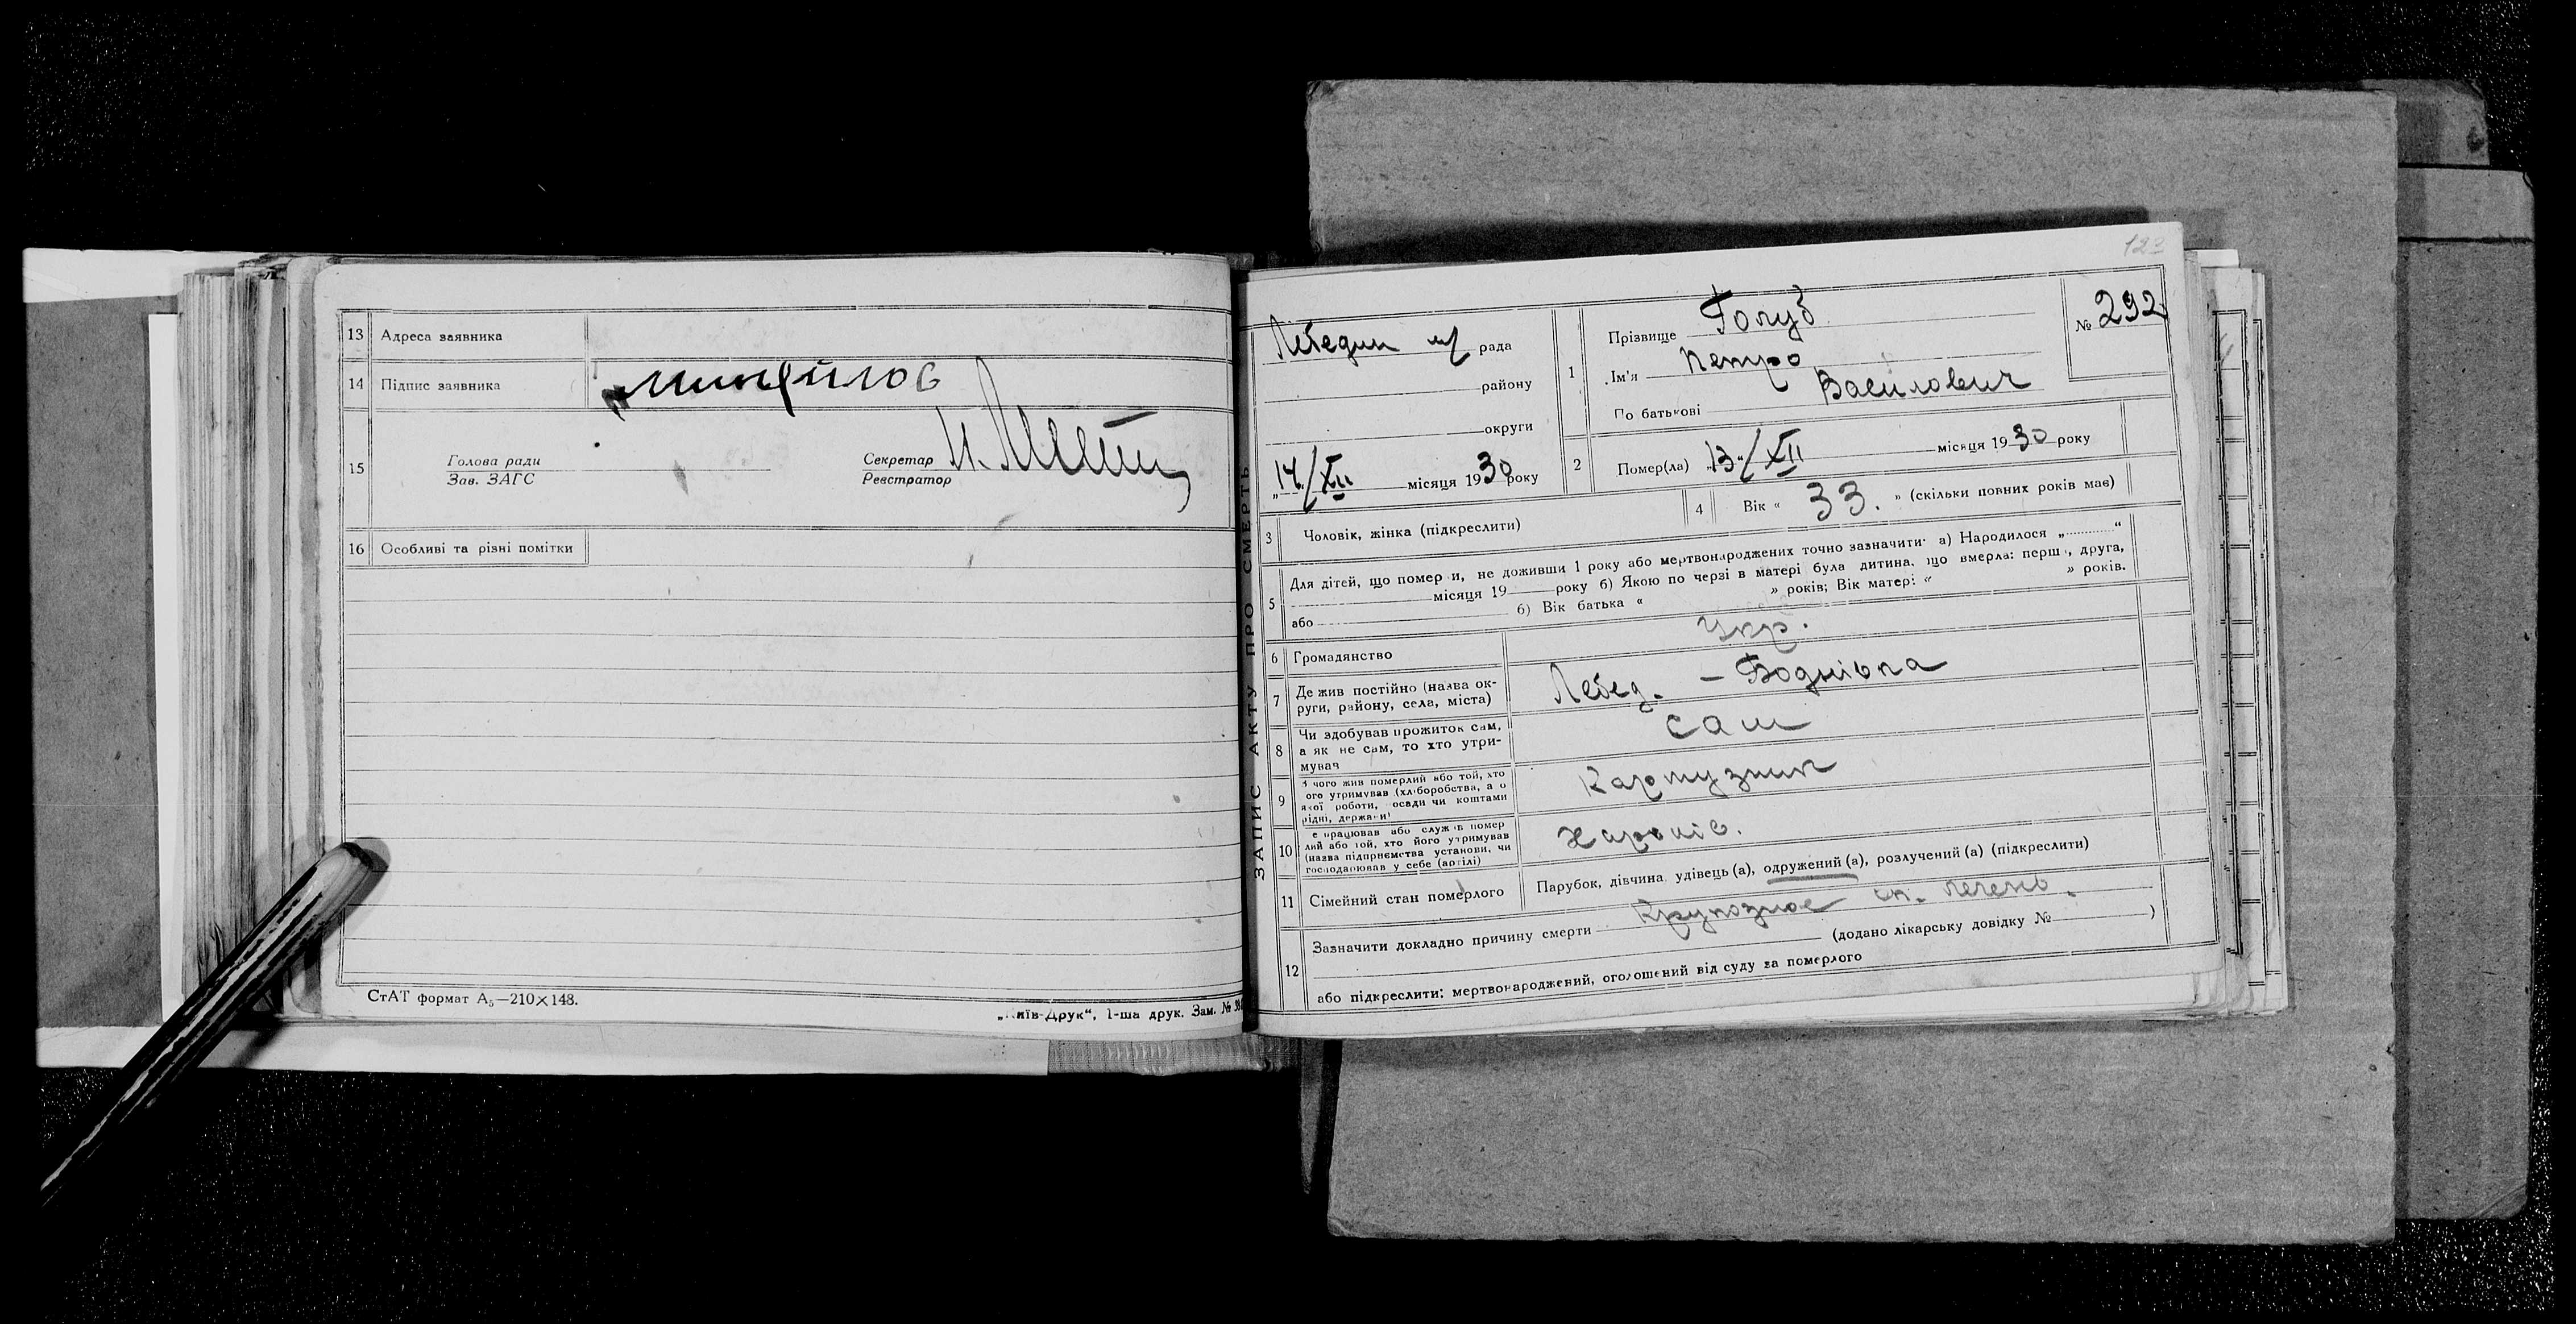 13 Адреса заявника
14 Підпис заявника
15 Голова ради
Зав. ЗАГС
Секретар
Реєстратор
16 Особливі та різні помітки
СтАТ формат А5—210×148.
„Київ-Друк“, 1-ша друк. Зам. №
ЗАПИС АКТУ ПРО СМЕРТЬ
123
Лебедин м/ рада
району
округи
„14“/XII місяця 1930 року
№ 292
1 Прізвище Голуб
Ім'я Петро
По батькові Василович
2 Помер(ла) „13“/XII місяця 1930 року
3 Чоловік, жінка (підкреслити)
4 Вік « 33. » (скільки повних років має)
5 Для дітей, що померли, не доживши 1 року або мертвонароджених точно зазначити: а) Народилося „ “
місяця 19 року б) Якою по черзі в матері була дитина, що вмерла: перша, друга,
або б) Вік батька « » років; Вік матері « » років.
6 Громадянство Укр.
7 Де жив постійно (назва ок-
руги, району, села, міста) Лебед. – Боднівка
8 Чи здобував прожиток сам,
а як не сам, то хто утри-
мував сам
9 З чого жив померлий або той, хто
його утримував (хліборобства, а о
якої роботи, посади чи коштами
рідні, держави) Картузник
10 Де працював або служив помер
лий або той, хто його утримував
(назва підприємства установи, чи
господарював у себе (артілі)
11 Сімейний стан померлого Парубок, дівчина, удівець (а), одружений (а), розлучений (а) (підкреслити)
12 Зазначити докладно причину смерти Крупозное
(додано лікарську довідку № )
або підкреслити: мертвонароджений, оголошений від суду за померлого